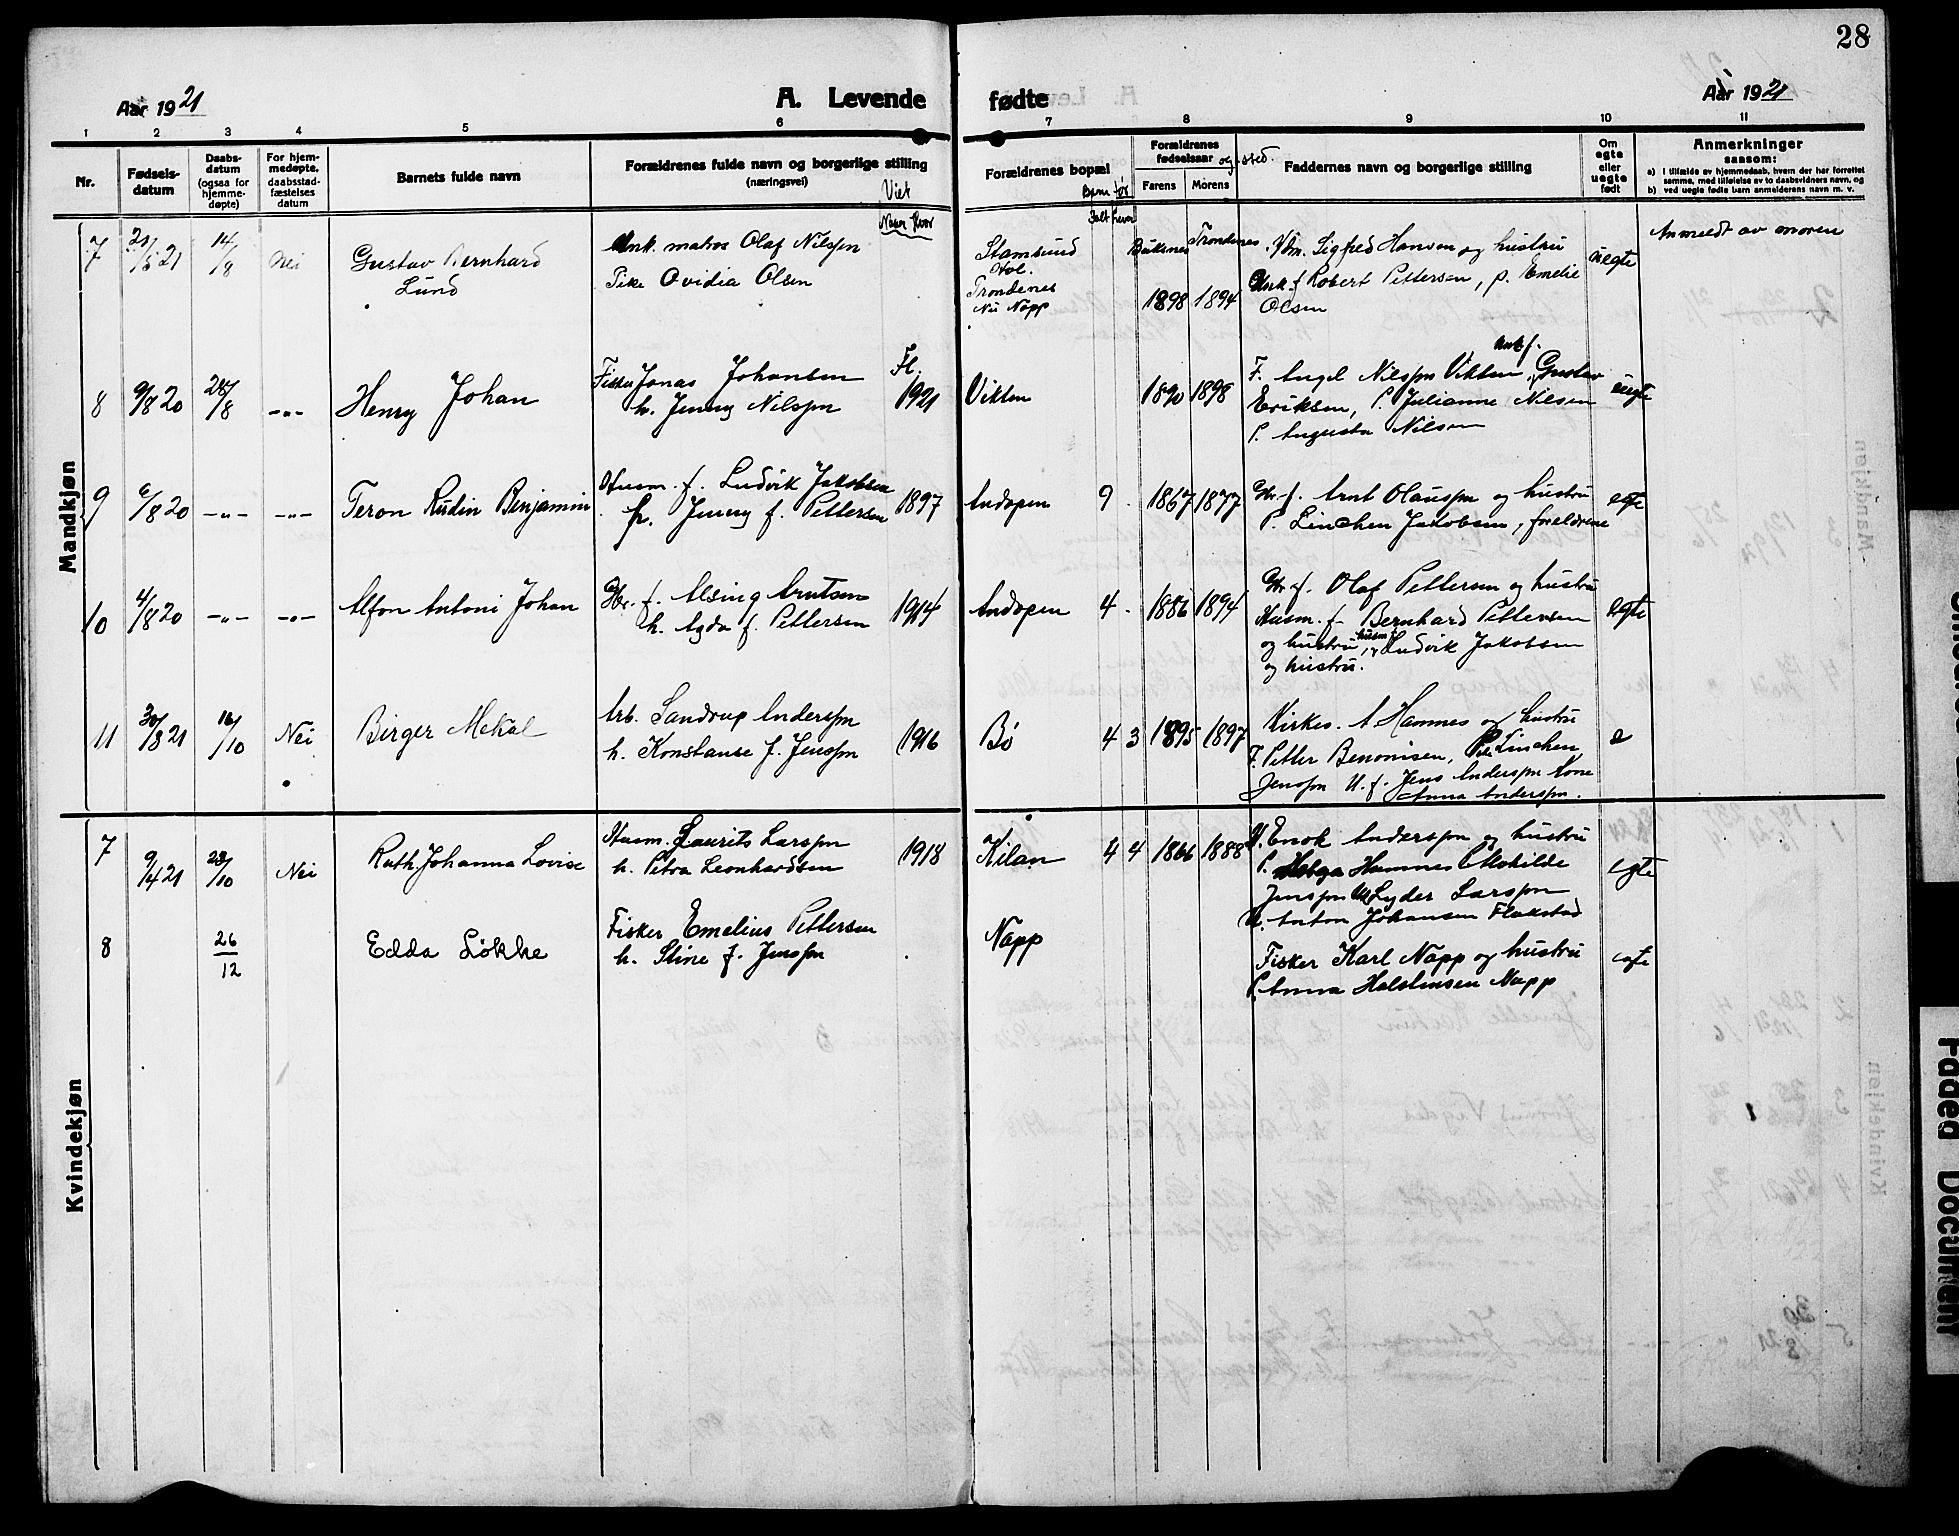 28
Aar 1921
A. Levende
fødte
Aar 1921
1 2 3 4 5 6 7 8 9 10 11
Nr.
Fødsels-
datum
Daabs-
datum
(ogsaa for
hjemme-
døpte)
For hjem-
medøpte,
daabsstad-
fæstelses
datum
Barnets fulde navn
Forældrenes fulde navn og borgerlige stilling
(næringsvei)
Viet
Naar
Forældrenes bopæl
Barn før
Ialt
Forældrenes
fødselsaar og sted.
Farens
Morens
Faddernes navn og borgerlige stilling
Om
egte
eller
uegte
født
Anmerkninger
saasom:
a) i tilfælde av hjemmedaab, hvem der har forrettet
samme, med tilføielse av to daabsvidners navn, og
b) ved uegte fødte barn anmelderens navn m. v.
Mandkjøn
7
20/5 21
14/8
Nei
Gustav Bernhard
Lund
Unk. matros Olaf Nilssen
Pike Ovidia Olsen
Stamsund
Hol.
Trondenes
Nu Napp
Buksnes
1898
Trondenes
1894
Sigfred Hansen og hustru
Unk. f. Robert Pettersen, p. Emelie
Olsen
uegte
Anmeldt av moren
8
9/8 20
28/8
-"-
Henry Johan
Fisker Jonas Johansen
h. Jenny Nilssen
Fl.
1921
Vikten
1890 1898
Unk. f.
F. Angel Nilssen Vikten, Gustav
Eriksen, P. Julianne Nilsen
P. Augusta Nilsen
uegte
9
6/8 20
-"-
-"-
Teron Rudin Benjamin
Husm. f. Ludvik Jakobsen
h. Jenny f. Pettersen
1897
Andopen
9
1867 1877
Gbr. f. Arnt Olaussen og hustru
P. Linchen Jakobsen, forældrene
egte
10
4/8 20
-"-
-"-
Alfon Antoni Johan
Gbr. f. Alsing Arntsen
h. Agda f. Pettersen
1914
Andopen
4
1886 1894
Gbr. f. Olaf Pettersen og hustru
Husm. f. Bernhard Pettersen
og hustru, husm. f. Ludvik Jakobsen
og hustru.
egte
11
30/8 21
16/10
Nei
Birger Mekal
Arb. Sandrup Anderssen
h. Konstanse f. Jenssen
1916
Bø
4 3
1895 1897
Kirkes. A Hamnes og hustru
F. Petter Benonisen, Linchen
Jenssen U. f. Jens Anderssen Kone
Anna Anderssen.
e
Kvindekjøn
7
9/4 21
23/10
Nei
Ruth Johanna Lovise
Husm. Laurits Larssen
h. Petra Leonhardsen
1918
Kilan
4 4
1866 1888
Enok Anderssen og hustru
P. Helga Hamnes P. Mathilde
Jenssen Lyder Larssen
U. Anton Johansen Flakstad
egte
8
26/12
Edda Løkke
Fisker Emelius Pettersen
h. Stine f. Jenssen
Napp
Fisker Karl Napp og hustru
P. Anna Halstensen Napp
egte
Faded Document